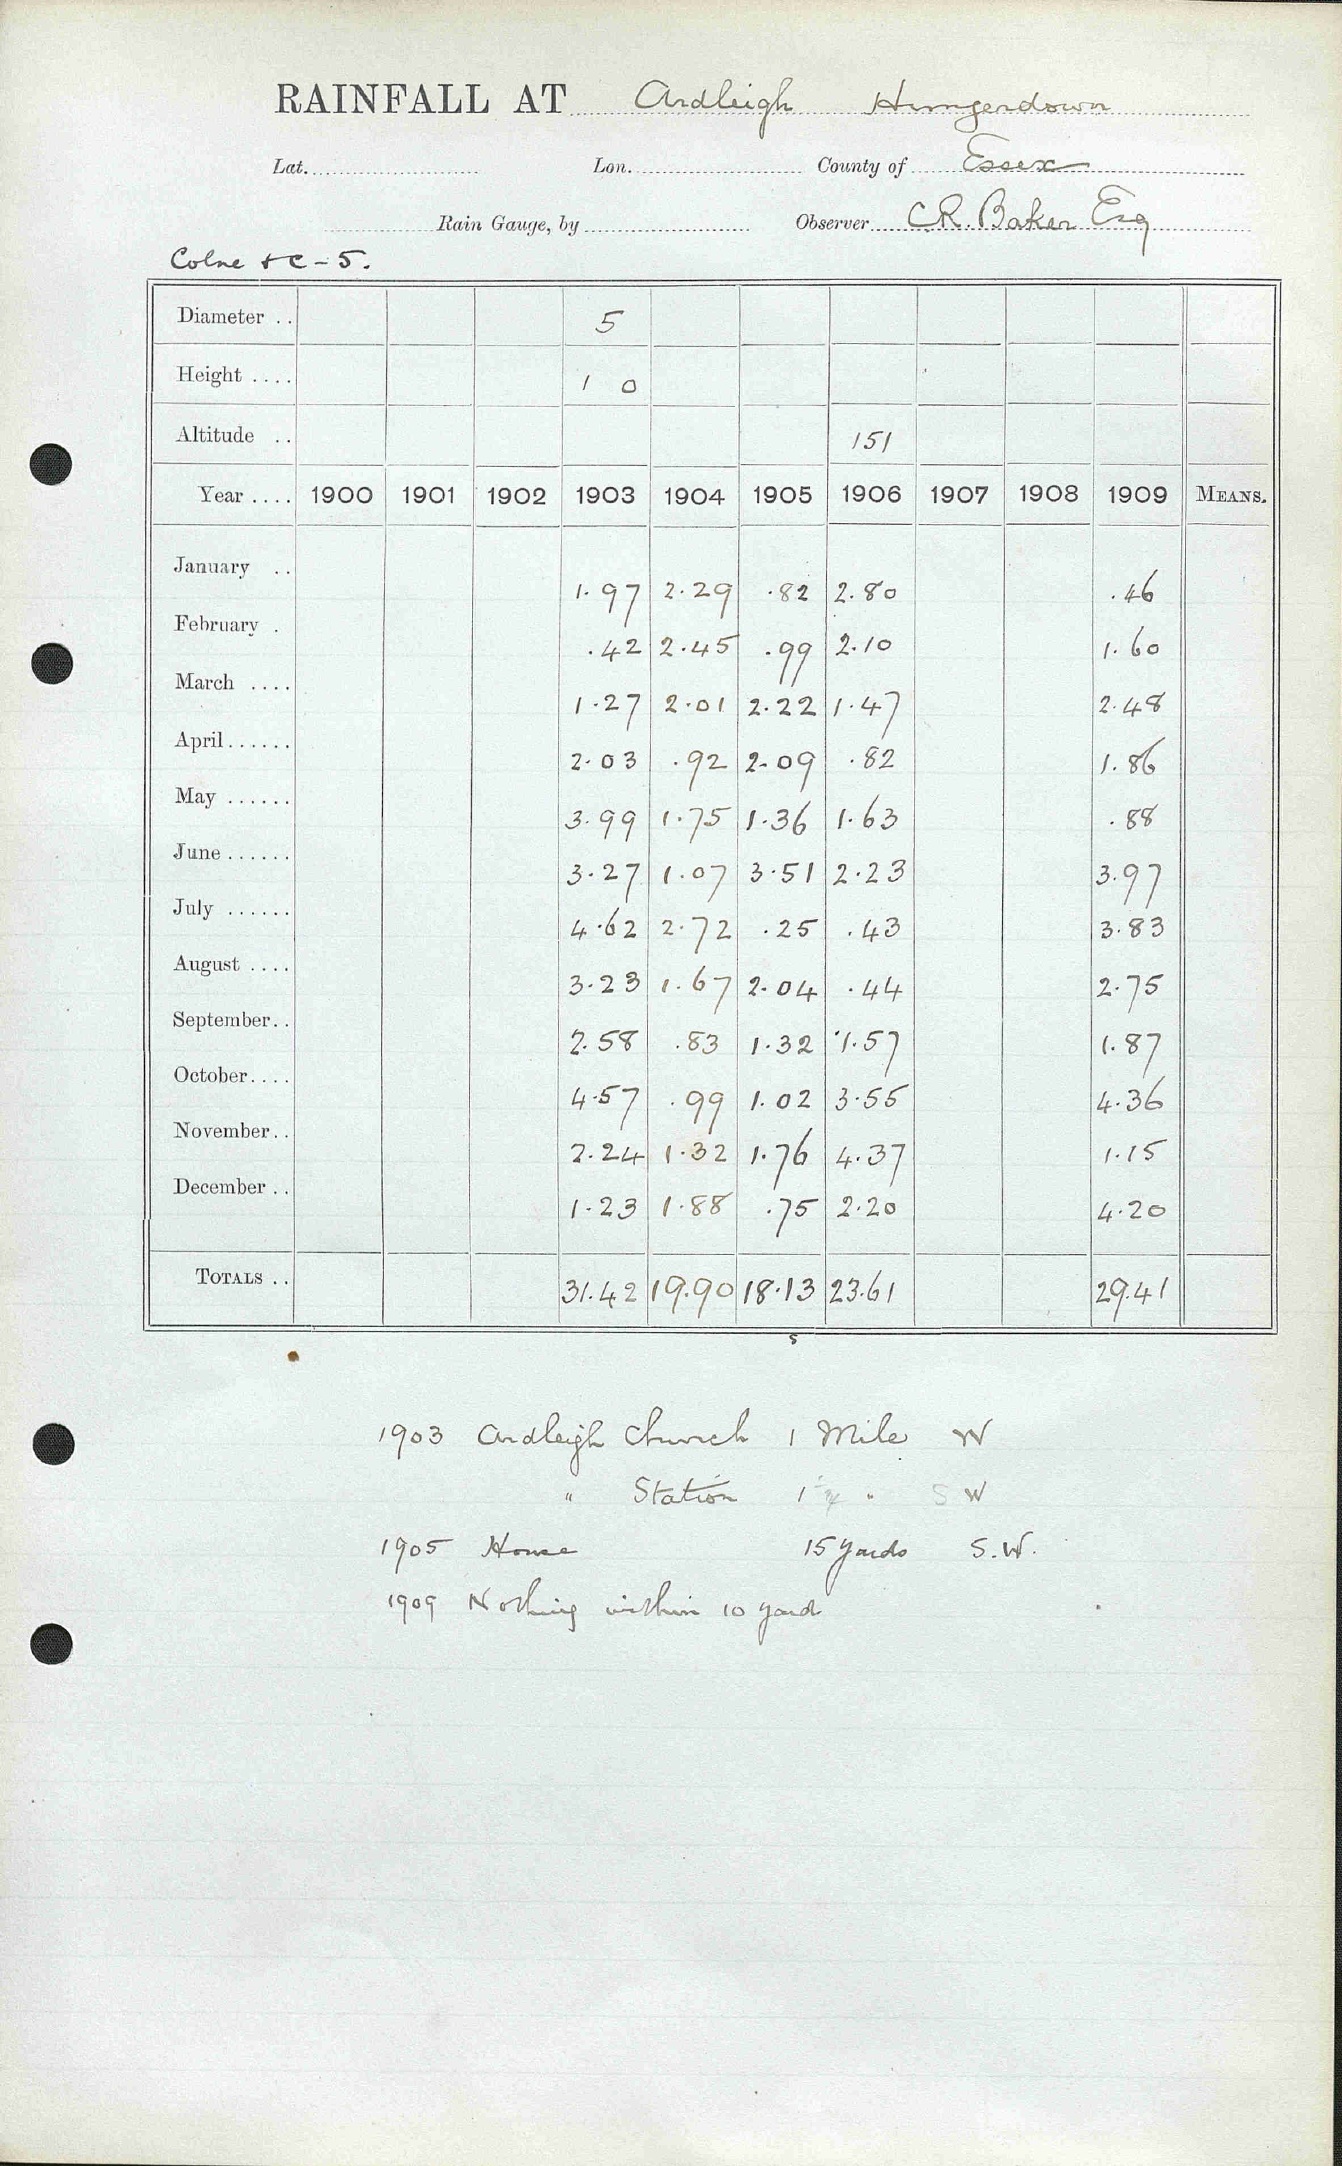 RAINFALL AT Ardleigh Hungerdown
Lat. Lon. County of Essex
Rain Gauge, by Observer C.R. Baker Esq
Colne & C - 5.
Diameter .. 5
Height .... 1 0
Altitude .. 151
Year .... 1900 1901 1902 1903 1904 1905 1906 1907 1908 1909 MEANS.
January .. 1.97 2.29 .82 2.80 .46
February . .42 2.45 .99 2.10 1.60
March .... 1.27 2.01 2.22 1.47 2.48
April...... 2.03 .92 2.09 .82 1.86
May ...... 3.99 1.75 1.36 1.63 .88
June ...... 3.27 1.07 3.51 2.23 3.97
July ...... 4.62 2.72 .25 .43 3.83
August .... 3.23 1.67 2.04 .44 2.75
September.. 2.58 .83 1.32 1.57 1.87
October.... 4.57 .99 1.02 3.55 4.36
November.. 2.24 1.32 1.76 4.37 1.15
December .. 1.23 1.88 .75 2.20 4.20
TOTALS .. 31.42 19.90 18.13 23.61 29.41
1903 Ardleigh Church 1 Mile W
" Station 1 " S W
1905 House 15 yards S.W.
1909 Nothing within 10 yard